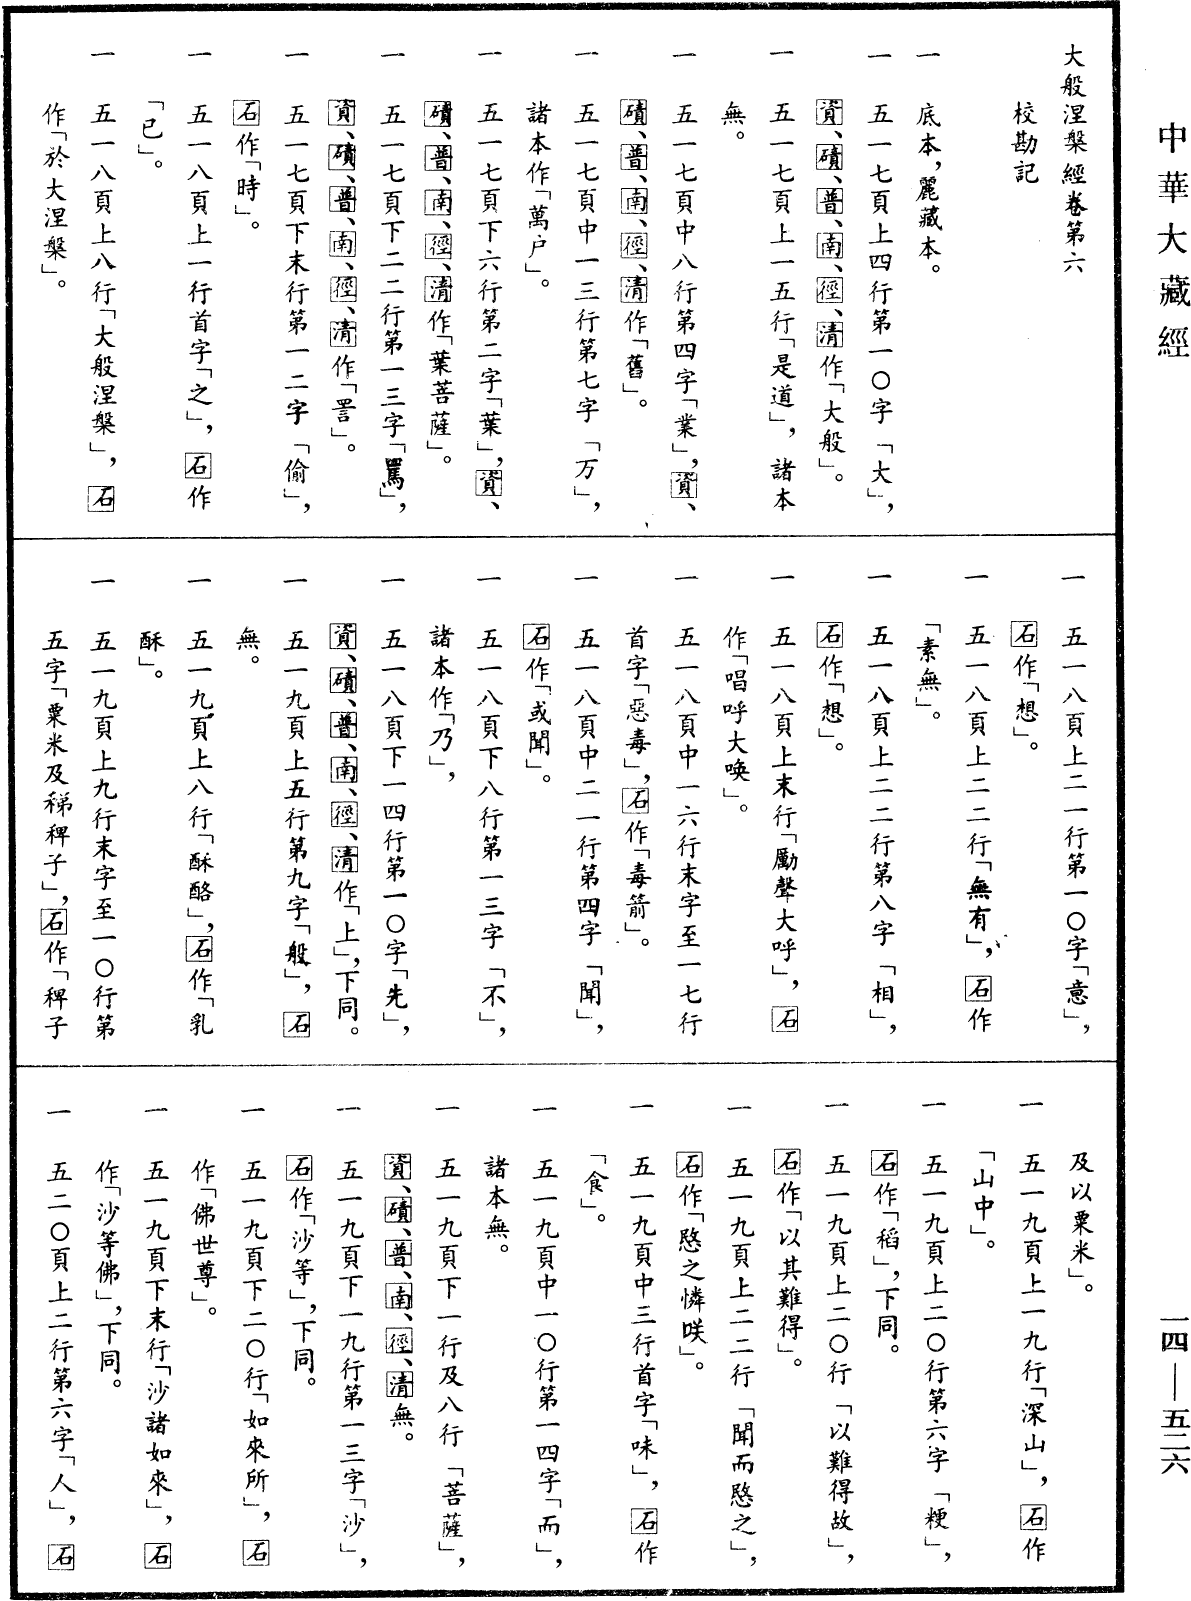 中華大藏經
大般涅槃經卷第六
校勘記
一　底本，麗藏本。
一　五一七頁上四行第一〇字「大」，
資、磧、普、南、徑、清作「大般」。
一　五一七頁上一五行「是道」，諸本
無。
一　五一七頁中八行第四字「業」，資、
磧、普、南、徑、清作「舊」。
一　五一七頁中一三行第七字「万」，
諸本作「萬户」。
一　五一七頁下六行第二字「葉」，資、
磧、普、南、徑、清作「葉菩薩」。
一　五一七頁下二二行第一三字「罵」，
資、磧、普、南、徑、清作「詈」。
一　五一七頁下末行第一二字「偷」，
石作「時」。
一　五一八頁上一行首字「之」，石作
「已」。
一　五一八頁上八行「大般涅槃」，石
作「於大涅槃」。
一　五一八頁上二一行第一〇字「意」，
石作「想」。
一　五一八頁上二二行「無有」，石作
「素無」。
一　五一八頁上二二行第八字「相」，
石作「想」。
一　五一八頁上末行「勵聲大呼」，石
作「唱呼大喚」。
一　五一八頁中一六行末字至一七行
首字「惡毒」，石作「毒箭」。
一　五一八頁中二一行第四字「聞」，
石作「或聞」。
一　五一八頁下八行第一三字「不」，
諸本作「乃」，
一　五一八頁下一四行第一〇字「先」，
資、磧、普、南、徑、清作「上」，下同。
一　五一九頁上五行第九字「般」，石
無。
一　五一九頁上八行「酥酪」，石作「乳
酥」。
一　五一九頁上九行末字至一〇行第
五字「粟米及稊稗子」，石作「稗子
及以粟米」。
一　五一九頁上一九行「深山」，石作
「山中」。
一　五一九頁上二〇行第六字「粳」，
石作「稻」，下同。
一　五一九頁上二〇行「以難得故」，
石作「以其難得」。
一　五一九頁上二二行「聞而愍之」，
石作「愍之憐咲」。
一　五一九頁中三行首字「味」，石作
「食」。
一　五一九頁中一〇行第一四字「而」，
諸本無。
一　五一九頁下一行及八行「菩薩」，
資、磧、普、南、徑、清無。
一　五一九頁下一九行第一三字「沙」，
石作「沙等」，下同。
一　五一九頁下二〇行「如來所」，石
作「佛世尊」。
一　五一九頁下末行「沙諸如來」，石
作「沙等佛」，下同。
一　五二〇頁上二行第六字「人」，石
一四—五二六